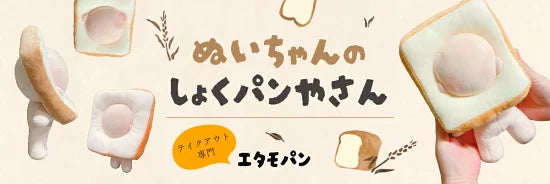 ぬいちゃんの
しょくパンやさん
テイクアウト
専門
エタモパン